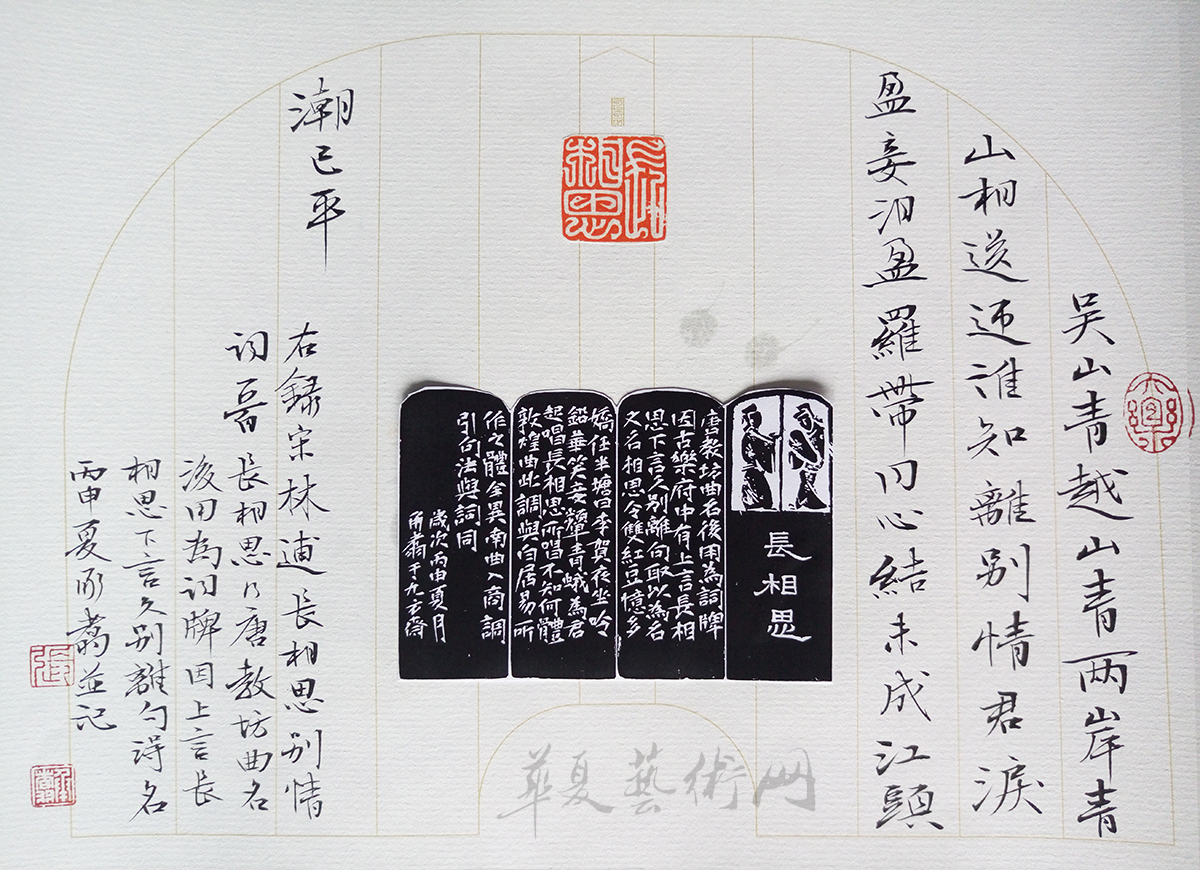 吴山青越山青两岸青
山相送迎谁知離别情君淚
盈妾泪盈羅帶同心結未成江頭
潮已平
右録宋林逋長相思别情
词一首長相思乃唐教坊曲名
後用為词牌因上言長
相思下言久别離句得名
丙申夏翥並記
張
長相思
長相思
唐教坊曲名後用為詞牌
因古樂府中有上言長相
思下言久别離句取以為名
又名相思令雙紅豆憶多
嬌任半塘曰李賀夜坐吟
鉛華笑妾顰青蛾為君
起唱長相思所唱不知何體
敦煌曲此調與白居易所
作之體全異南曲入商調
引句法與詞同
歲次丙申夏月
翥于九齋
華夏藝術网